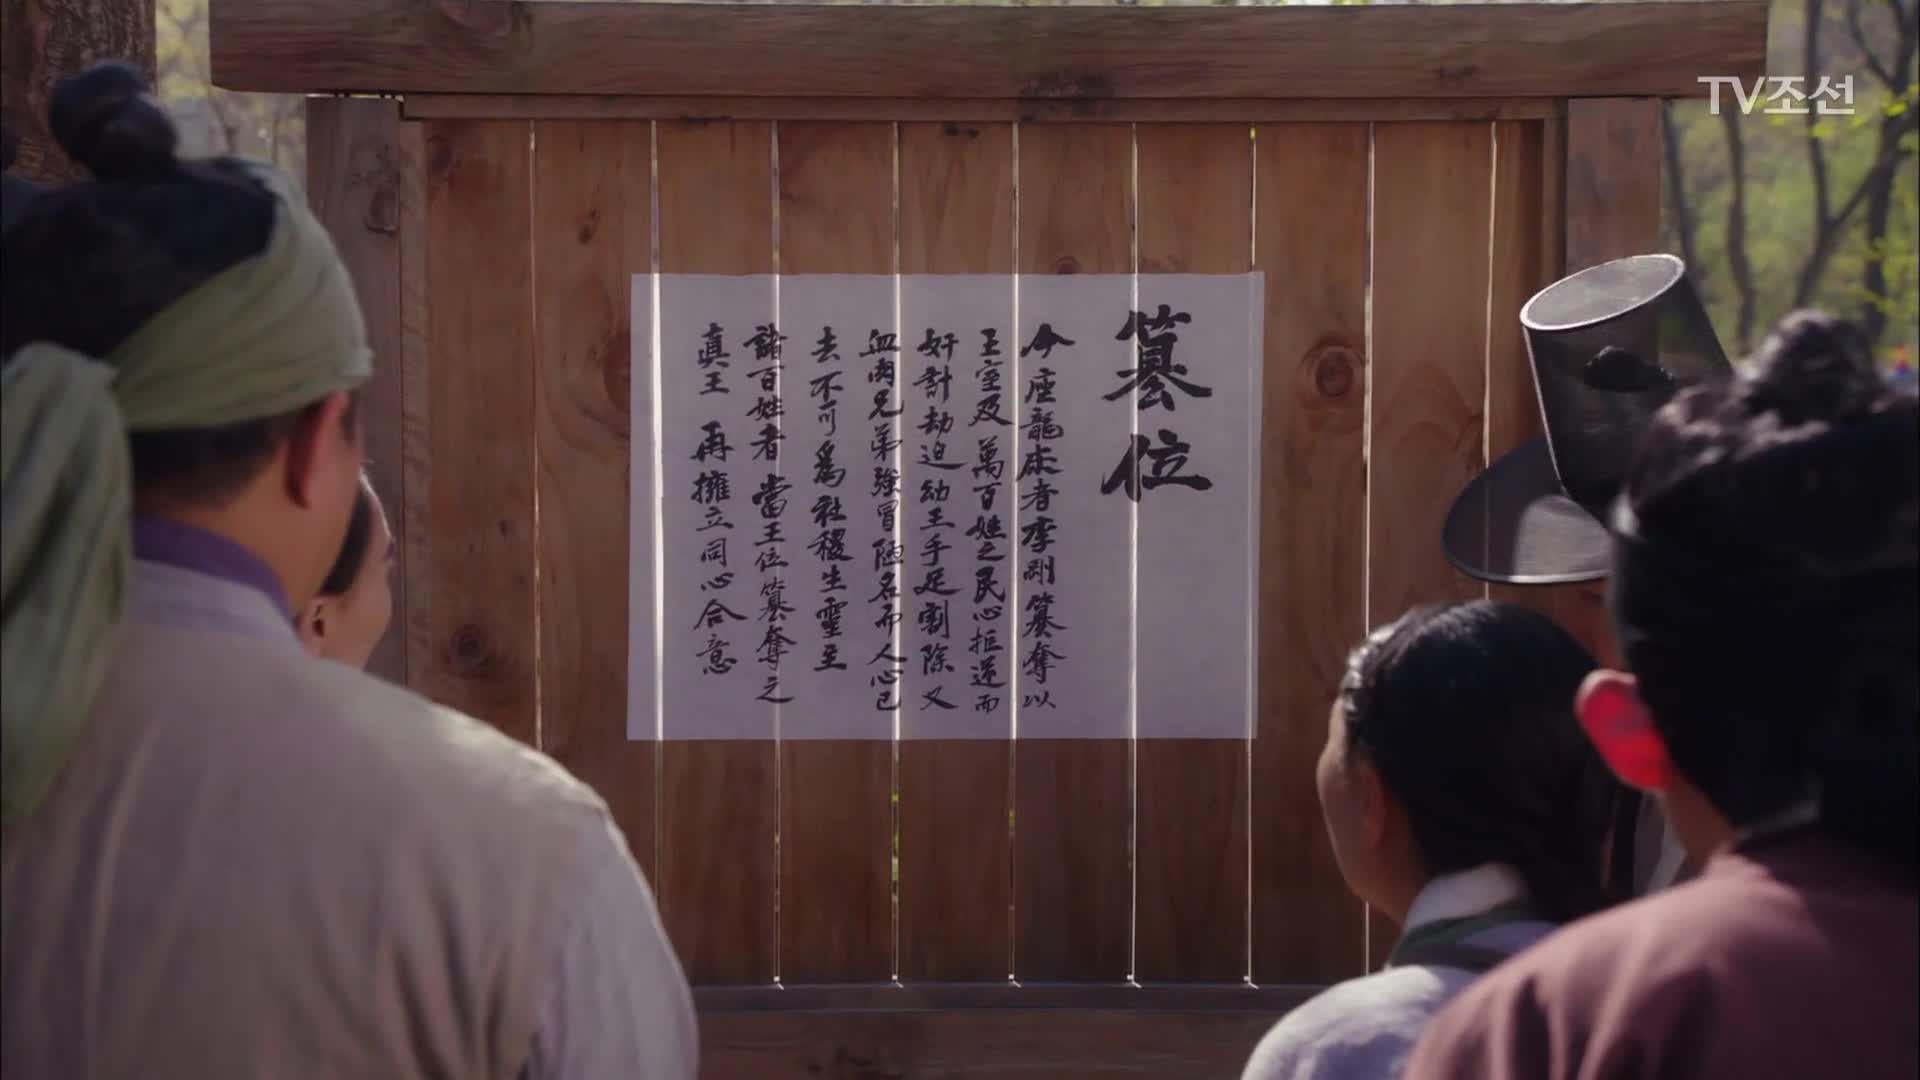 TV조선
簒位
今座龍床者李剛簒奪以
王室及萬百姓之民心拒逆而
奸計劫迫幼王手足割除又
血肉兄弟強冒陋名而人心已
去不可爲社稷生靈至
諸百姓者當王位簒奪之
眞王再擁立同心合意